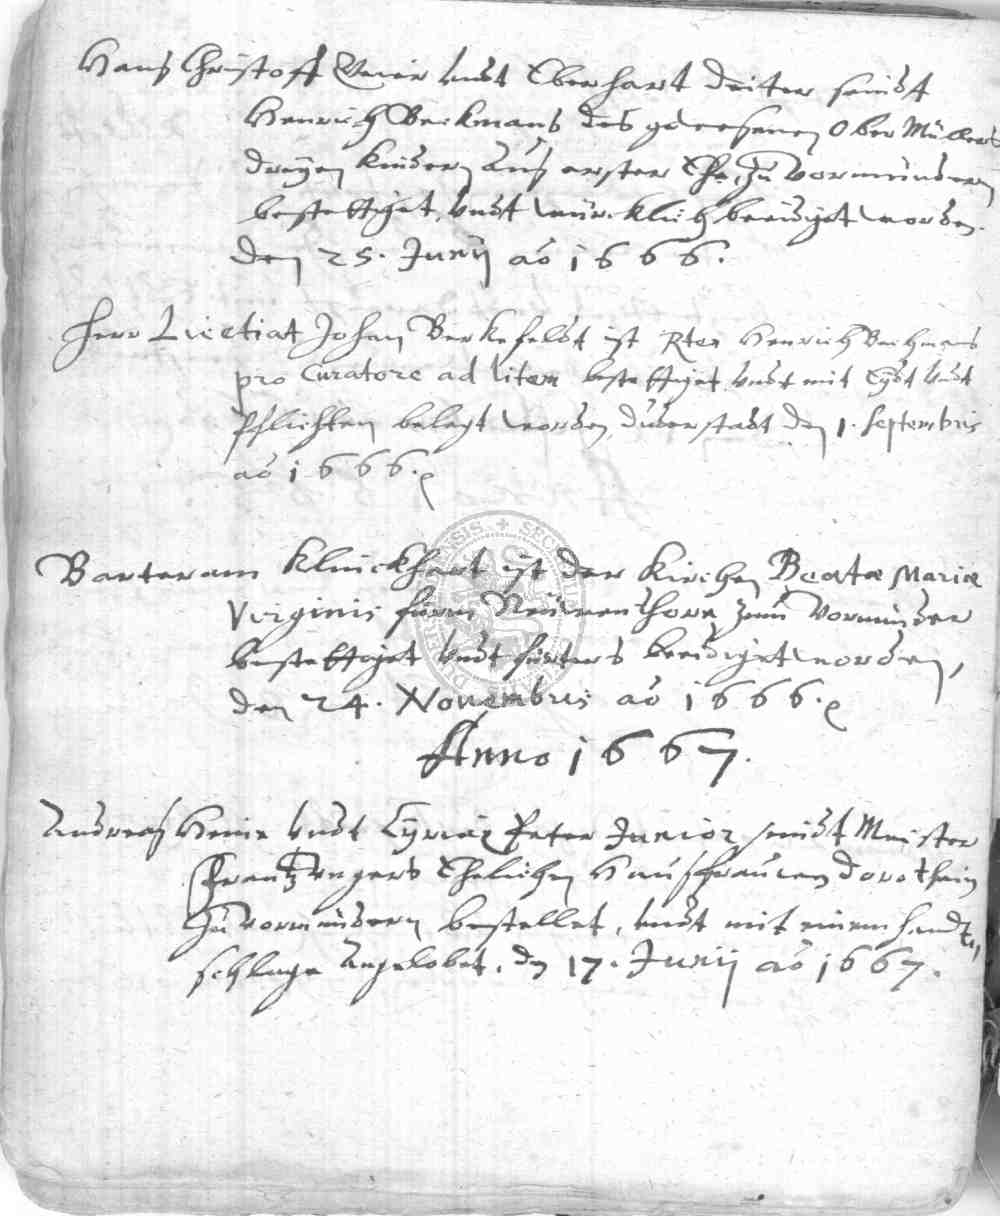 Hanß Christoff Meier undt Eberhart Deiter seindt
Henrich Beckmans des gewesenen Ober Müllers
dreyen Kindern auß erster Ehe, zu Vormündern
bestettiget, undt würcklich beeidiget worden.
den 25. Junij aö 1666.
Herr Licetiat Johan Berkefeldt ist Henrich Bachmans
pro Curatore ad litem bestettiget undt mit Eydt undt
Pflichten belegt worden, Duderstadt den 1. Septembris
aö 1666.
Barteram Kluickhart ist der Kirchen Beatæ Mariæ
Virginis fürm Neüwenthore zum Vormünder
bestettiget undt beeidiget worden,
den 24. Novembris aö 1666.
Anno 1667.
Andreaß Heine undt Cyriax Peter Junior seindt Meister
Frantz Ehelichen Haußfrauwen Dorothein
zu vormündern bestellet, undt mit einem handt
schlage angelobet. den 17. Junij aö 1667.